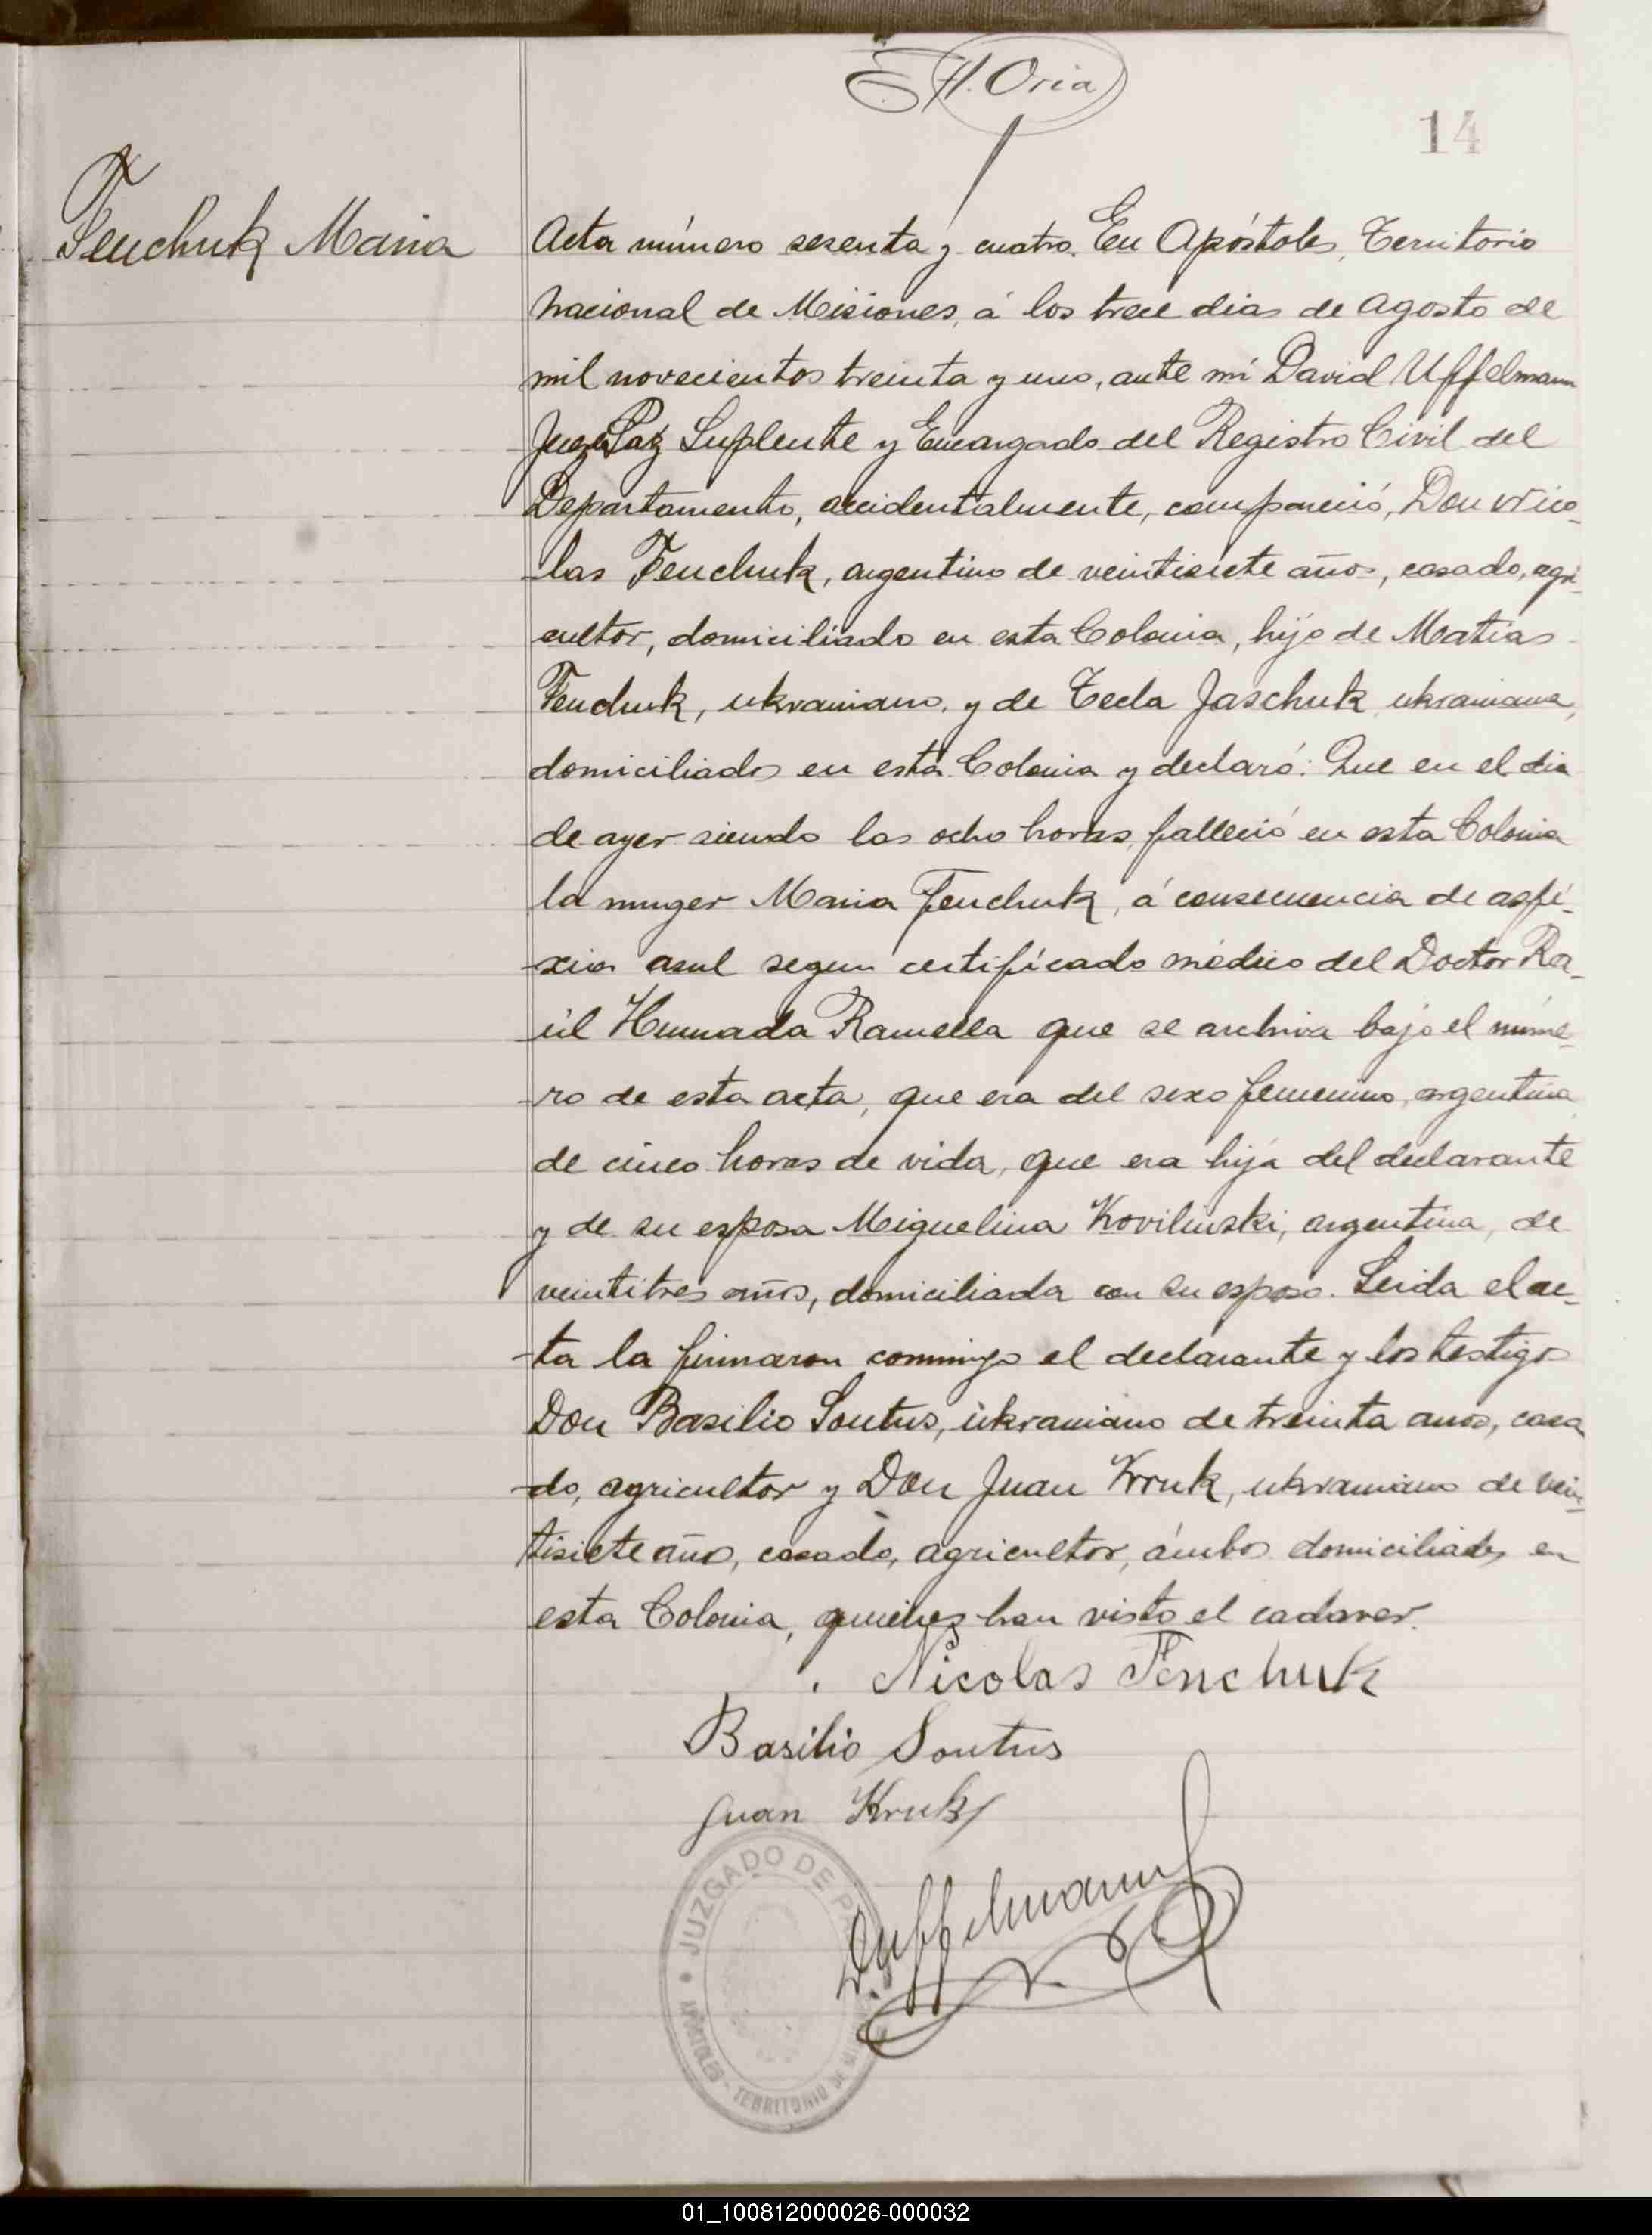 H. Oria
14
Fenchuk Maria
Acta número sesenta y cuatro. En Apóstoles, Territorio
Nacional de Misiones, á los trece dias de agosto de
mil novecientos treinta y uno, ante mí David Uffelmann
Juez Paz Suplente y Encargado del Registro Civil del
Departamento, accidentalmente, compareció, Don Nico-
las Fenchuk, argentino de veintisiete años, casado, agri-
cultor, domiciliado en esta Colonia, hijo de Matias
Fenchuk, ukraniano, y de Tecla Jaschuk ukraniana,
domiciliados en esta Colonia y declaró: Que en el dia
de ayer siendo las ocho horas, falleció en esta Colonia
la muger Maria Fenchuk, á consecuencia de asfi-
xia asul segun certificado médico del Doctor Ra-
úl Hunnada Ramella que se archiva bajo el núme-
ro de esta acta, que era del sexo femenino, argentina
de cinco horas de vida, que era hija del declarante
y de su esposa Miguelina Kovilinski, argentina, de
veintitres años, domiciliada con su esposo. Leida el ac-
ta la firmaron conmigo el declarante y los testigos
Don Basilio Soutus, ukraniano de treinta anos, casa
do, agricultor y Don Juan Kruk, ukraniano de vein-
tisiete años, casado, agricultor, ámbos domiciliados en
esta Colonia, quienes han visto el cadaver.
Nicolas Fenchuk
Basilio Soutus
Juan Kruk
D. Uffelmann
JUZGADO DE P
APÓSTOLES - TERRITORIO DE MI
01_100812000026-000032